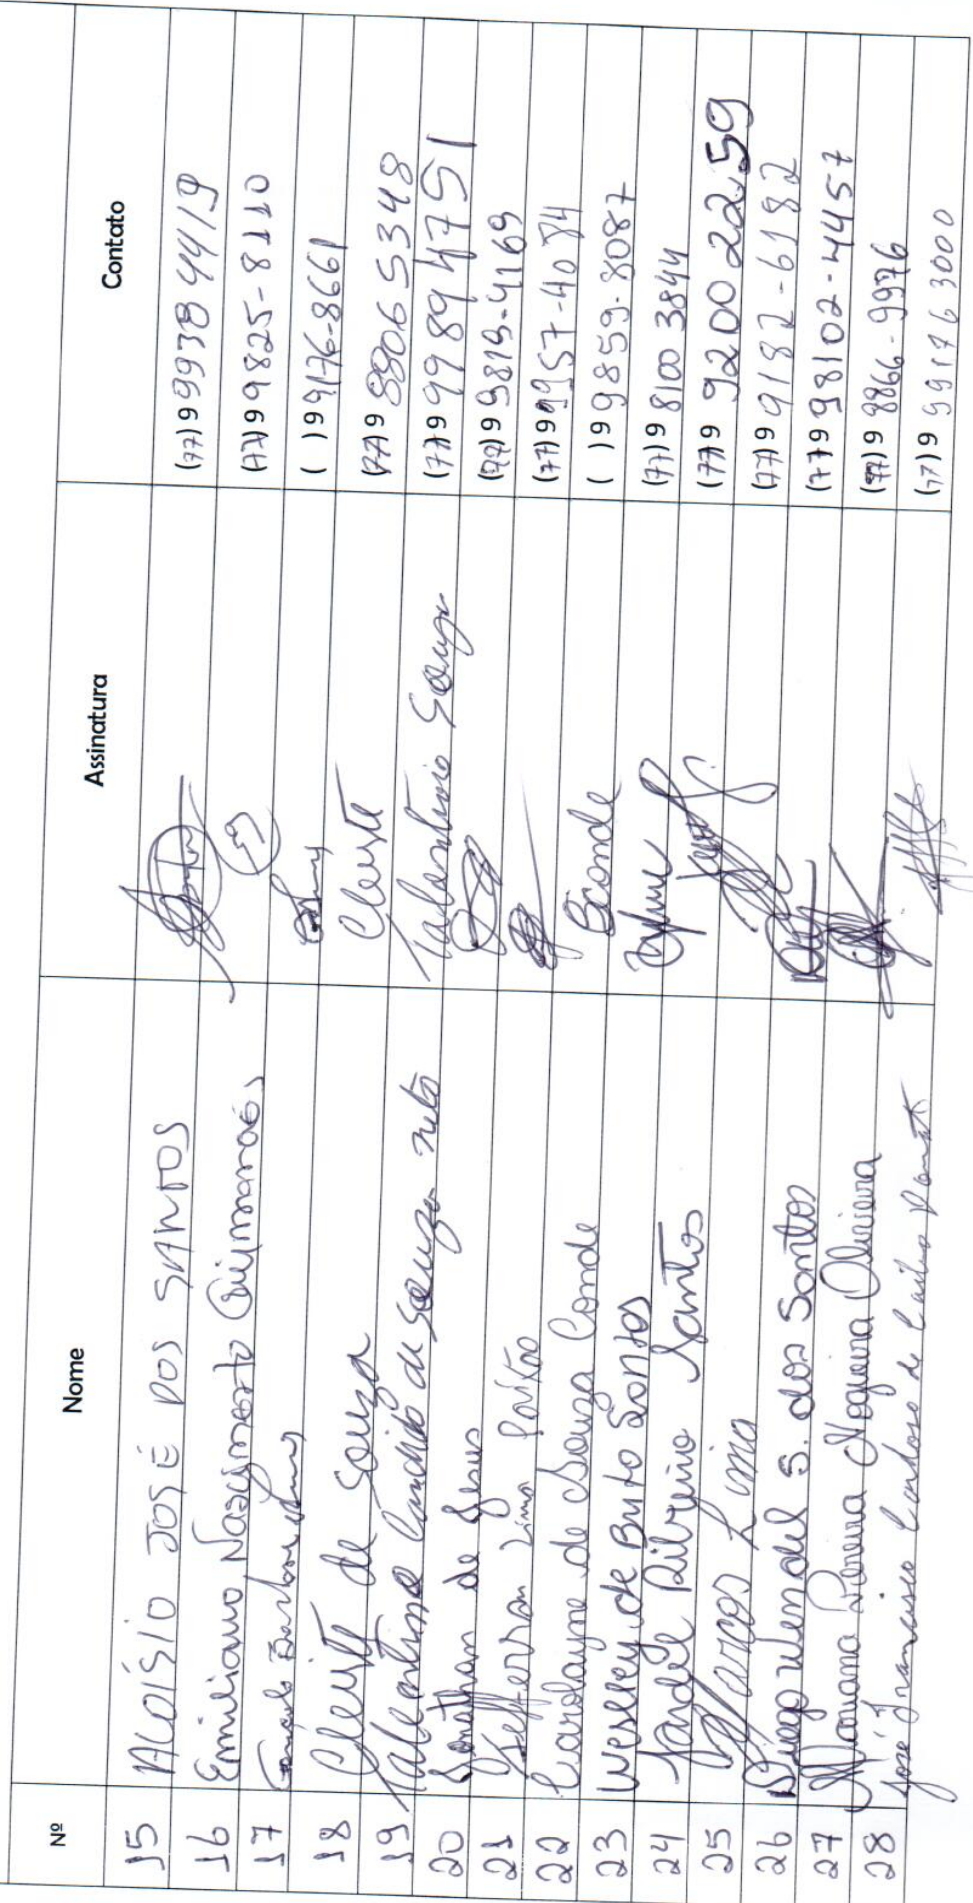 Nº Nome Assinatura Contato
15 ALOÍSIO JOSÉ DOS SANTOS (77) 9 9938 4419
16 Emiliano Nascimento Guimarães (77) 9 9825-8110
17 Barbosa ( ) 9 9176-8661
18 Cleuste de Souza Cleuste (77) 9 88065348
19 Valentino Candido de Souza neto Valentino Souza (77) 9 99894751
20 Jonathan de Jesus (77) 9 9819-4169
21 Jefferson Lima Paixão (77) 9 9957-4084
22 Carolayne de Souza Conde Bconde ( ) 9 9859-8087
23 Wesley de Brito Santos (77) 9 8100 3844
24 Jardel Ribeiro Santos (77) 9 92002259
25 Marcos Lima (77) 9 9182-6182
26 Diego Wendel S. dos Santos (77) 9 98102-4457
27 Mariana Pereira Nogueira Oliveira (77) 9 8866-9976
28 José Francisco Cardoso de (77) 9 991763000